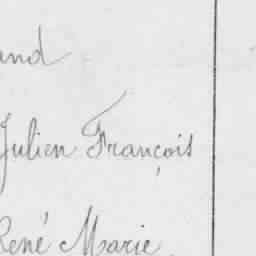 Julien François
René Marie